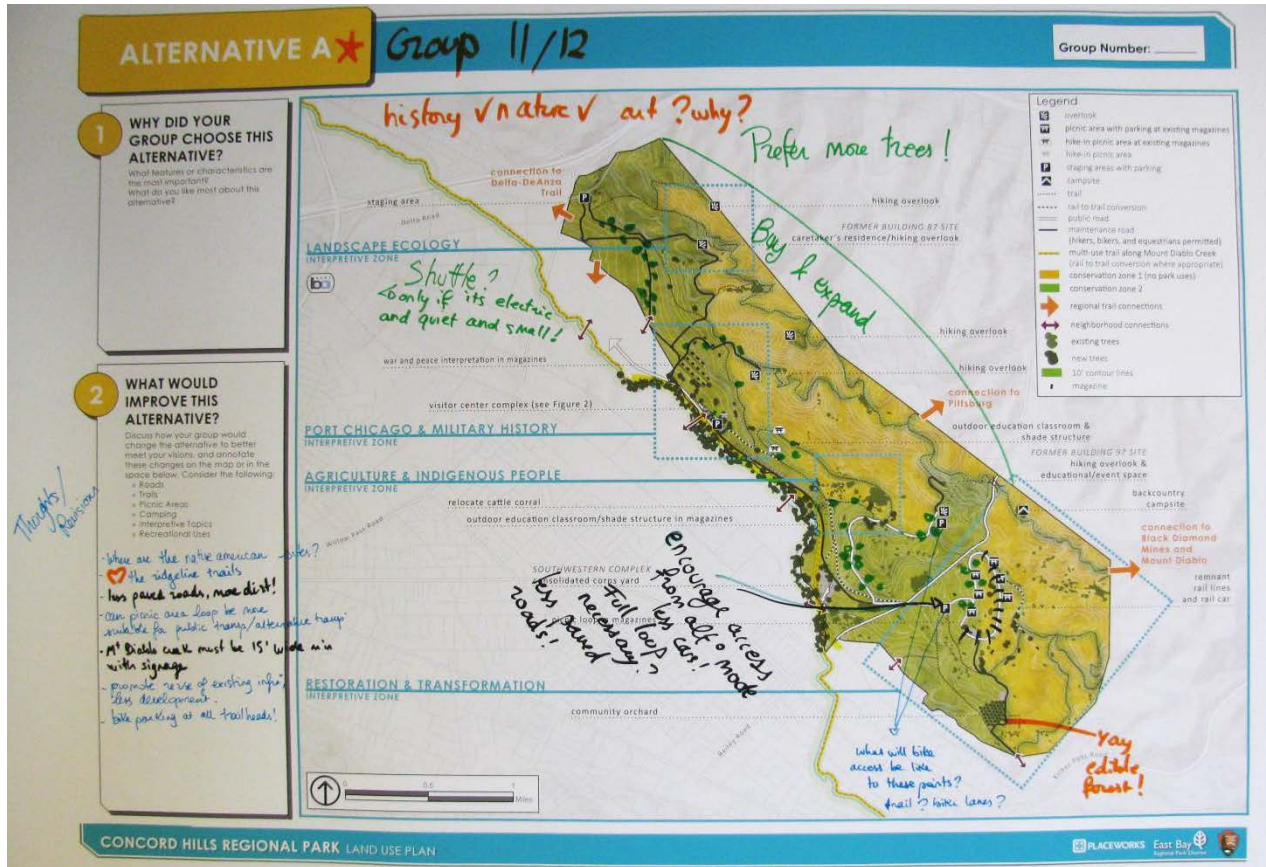 ALTERNATIVE A
Group 11/12
Group Number:
1
WHY DID YOUR
GROUP CHOOSE THIS
ALTERNATIVE?
What features or characteristics are
the most important?
What do you like most about this
alternative?
2
WHAT WOULD
IMPROVE THIS
ALTERNATIVE?
Discuss how your group would
change the alternative to better
meet your visions, and annotate
these changes on the map or in the
space below. Consider the following:
» Roads
» Trails
» Picnic Areas
» Camping
» Interpretive Topics
» Recreational Uses
Thoughts/
Revisions
- Where are the native american sites?
- the ridgeline trails
- less paved roads, more dirt!
- can picnic area loop be more
suitable for public transp/alternative transp
- Mt Diablo creek must be 15' wide min
with signage
- promote reuse of existing infra,
less development.
- bike parking at all trailheads!
history ✓ nature ✓ art ? why?
Prefer more trees!
Buy & expand
Shuttle?
only if its electric
and quiet and small!
encourage access
from alt mode
less cars!
Full loop
necessary?
less paved
roads!!
what will bike
access be like
to these points?
trail? bike lanes?
Yay
edible
forest!
connection to
Delta-DeAnza
Trail
staging area
Delta Road
LANDSCAPE ECOLOGY
INTERPRETIVE ZONE
war and peace interpretation in magazines
visitor center complex (see Figure 2)
PORT CHICAGO & MILITARY HISTORY
INTERPRETIVE ZONE
AGRICULTURE & INDIGENOUS PEOPLE
INTERPRETIVE ZONE
relocate cattle corral
outdoor education classroom/shade structure in magazines
Willow Pass Road
SOUTHWESTERN COMPLEX
consolidated corps yard
magazines
RESTORATION & TRANSFORMATION
INTERPRETIVE ZONE
community orchard
Bailey Road
hiking overlook
FORMER BUILDING 87 SITE
caretaker's residence/hiking overlook
hiking overlook
hiking overlook
connection to
Pittsburg
outdoor education classroom &
shade structure
FORMER BUILDING 97 SITE
hiking overlook &
educational/event space
backcountry
campsite
connection to
Black Diamond
Mines and
Mount Diablo
remnant
rail lines
and rail car
Kirker Pass Road
Legend
overlook
picnic area with parking at existing magazines
hike-in picnic area at existing magazines
hike-in picnic area
staging areas with parking
campsite
trail
rail to trail conversion
public road
maintenance road
(hikers, bikers, and equestrians permitted)
multi-use trail along Mount Diablo Creek
(rail to trail conversion where appropriate)
conservation zone 1 (no park uses)
conservation zone 2
regional trail connections
neighborhood connections
existing trees
new trees
10' contour lines
magazine
P
P
P
P
0
0.5
1
Miles
CONCORD HILLS REGIONAL PARK LAND USE PLAN
PLACEWORKS
East Bay
Regional Park District